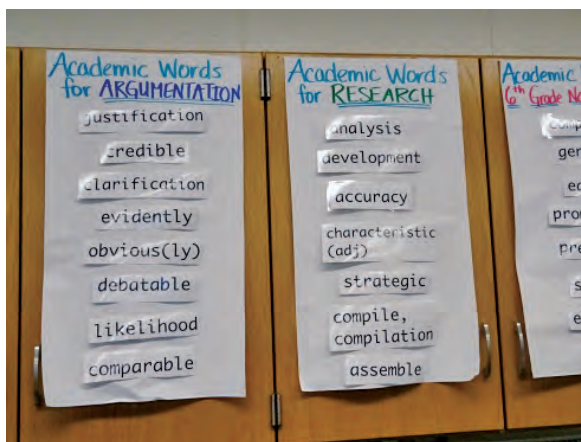 Academic Words
for ARGUMENTATION
justification
credible
clarification
evidently
obvious(ly)
debatable
likelihood
comparable
Academic Words
for RESEARCH
analysis
development
accuracy
characteristic
(adj)
strategic
compile,
compilation
assemble
Academic
6th Grade